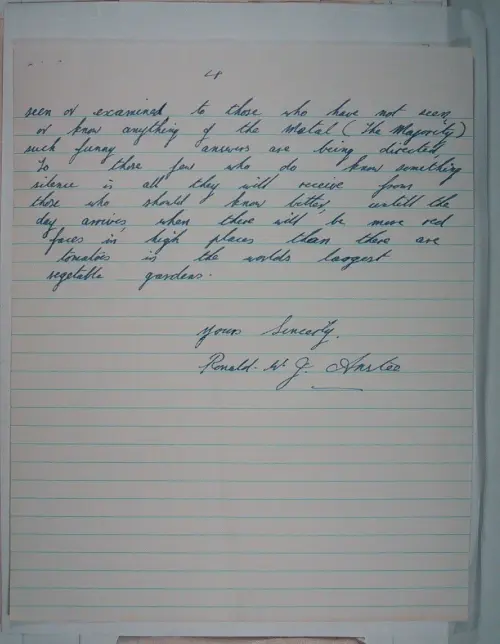 4
seen or examined to those who have not seen
or know anything of the metal (The Majority)
such funny answers are being directed,
To those few who do know something
silence is all they will receive from
those who should know better, untill the
day arrives when there will be more red
faces in high places than there are
tomatoes in the worlds largest
vegetable gardens.
yours Sincerly.
Ronald. W. J. Anstee